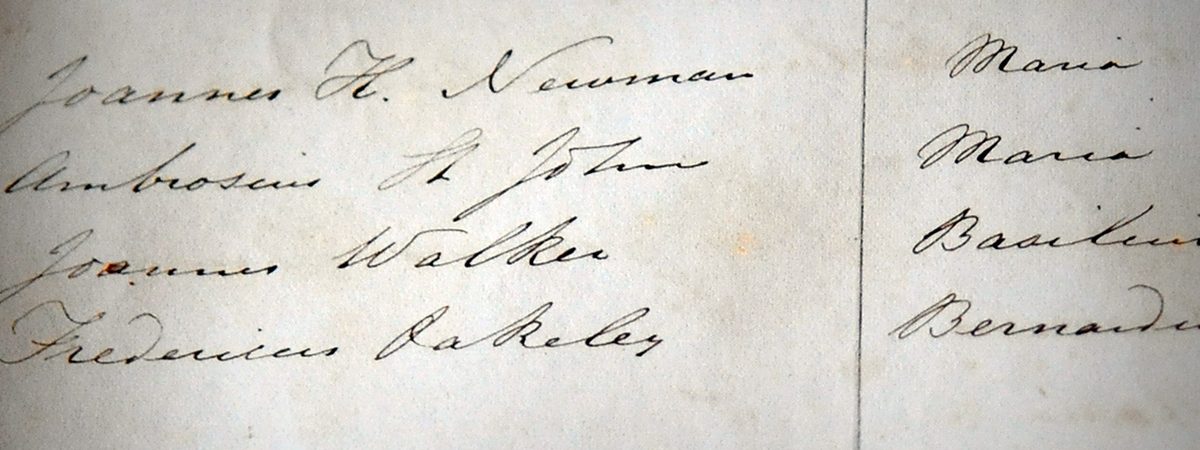 Joannes H. Newman Maria
Ambrosius St John Maria
Joannes Walker Basilius
Fredericus Oakeley Bernardu